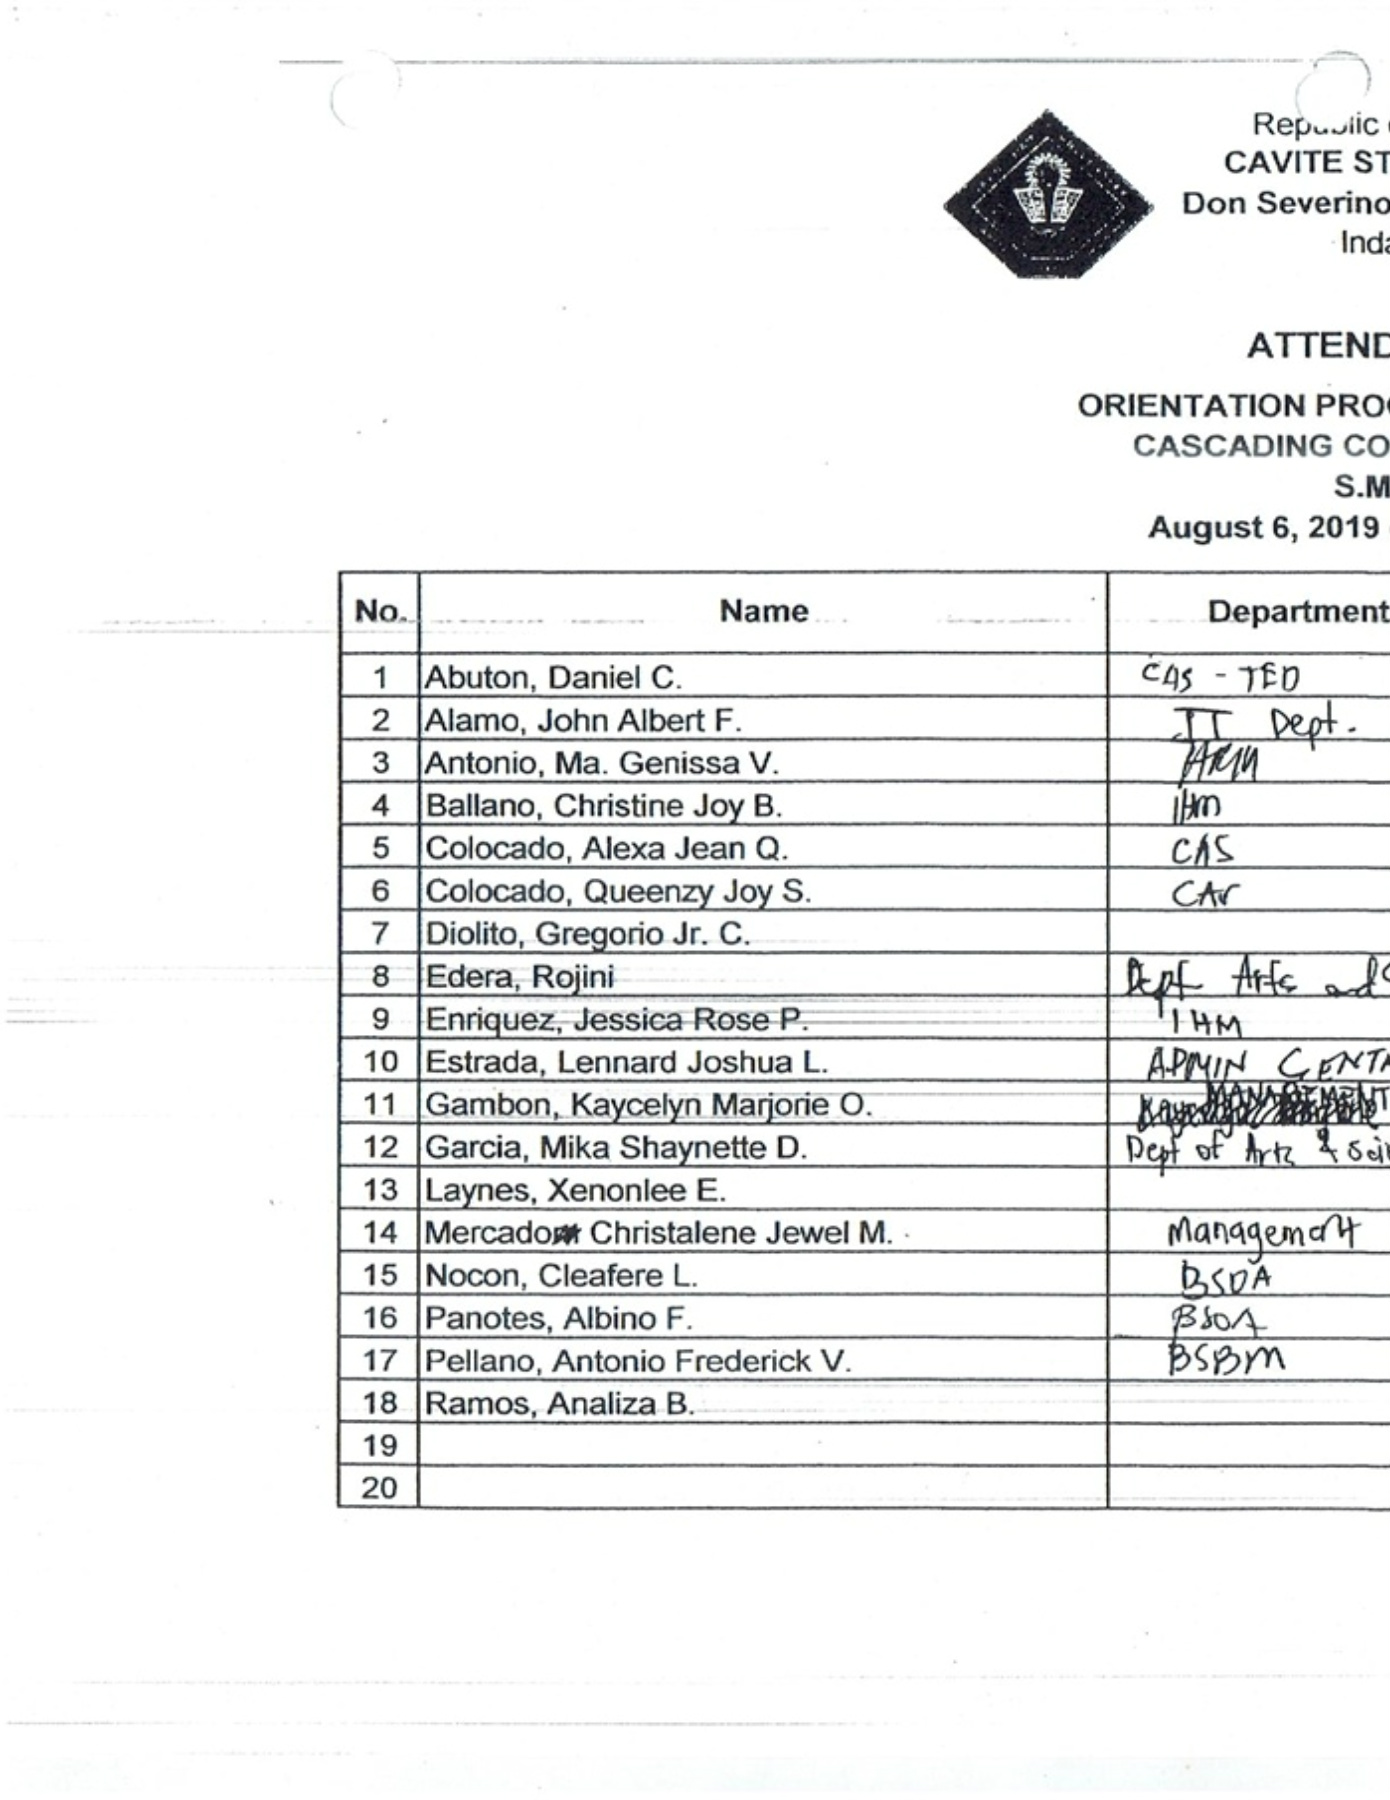 Republic
CAVITE ST
Don Severino
Inda
ATTEND
ORIENTATION PROG
CASCADING CO
S.M
August 6, 2019
No. Name Department
1 Abuton, Daniel C. CAS - TED
2 Alamo, John Albert F. IT Dept.
3 Antonio, Ma. Genissa V.
4 Ballano, Christine Joy B. IHM
5 Colocado, Alexa Jean Q. CAS
6 Colocado, Queenzy Joy S. CAS
7 Diolito, Gregorio Jr. C.
8 Edera, Rojini Dept Arts and
9 Enriquez, Jessica Rose P. IHM
10 Estrada, Lennard Joshua L. ADMIN
11 Gambon, Kaycelyn Marjorie O. MANAGEMENT
12 Garcia, Mika Shaynette D. Dept of Arts & Sci
13 Laynes, Xenonlee E.
14 Mercado Christalene Jewel M. Management
15 Nocon, Cleafere L. BSOA
16 Panotes, Albino F. BSOA
17 Pellano, Antonio Frederick V. BSBM
18 Ramos, Analiza B.
19
20